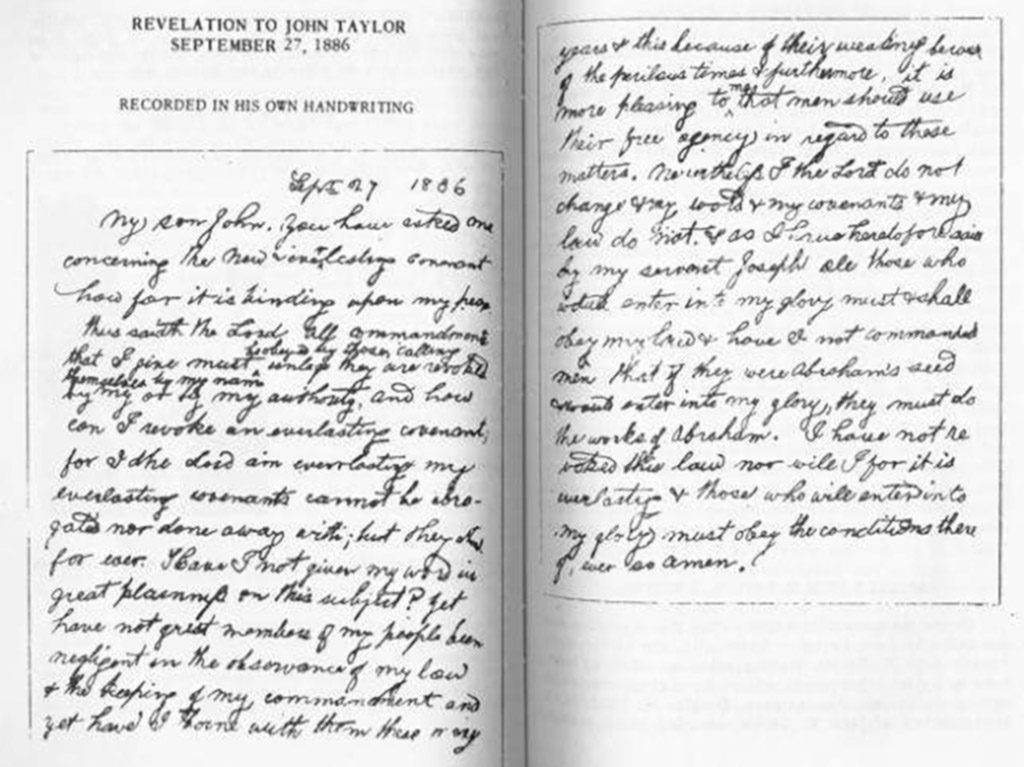 REVELATION TO JOHN TAYLOR
SEPTEMBER 27, 1886
RECORDED IN HIS OWN HANDWRITING
Sept 27 1886
My son John. You have asked me
concerning the New & everlasting covenant
how far it is binding upon my people
thus saith the Lord all commandments
that I give must be obeyed by those calling
themselves by my name unless they are revoked
by my or by my authority, and how
can I revoke an everlasting covenant;
for I the Lord am everlasting & my
everlasting covenants cannot be abro-
gated nor done away with; but they stand
for ever. Have I not given my word in
great plainness on this subject? Yet
have not great numbers of my people been
negligent in the observance of my law
& the keeping of my commandment and
yet have I borne with them these many
years & this because of their weakness because
of the perilous times & furthermore, it is
more pleasing to me that men should use
their free agency in regard to those
matters. Nevertheless I the Lord do not
change & my word & my covenants & my
law do not. & as I have heretofore said
by my servant Joseph all those who
would enter into my glory must & shall
obey my law & have I not commanded
men that if they were Abraham's seed
& would enter into my glory, they must do
the works of Abraham. I have not re
voked this law nor will I for it is
everlasting & those who will enter into
my glory must obey the conditions there
of, even so amen.